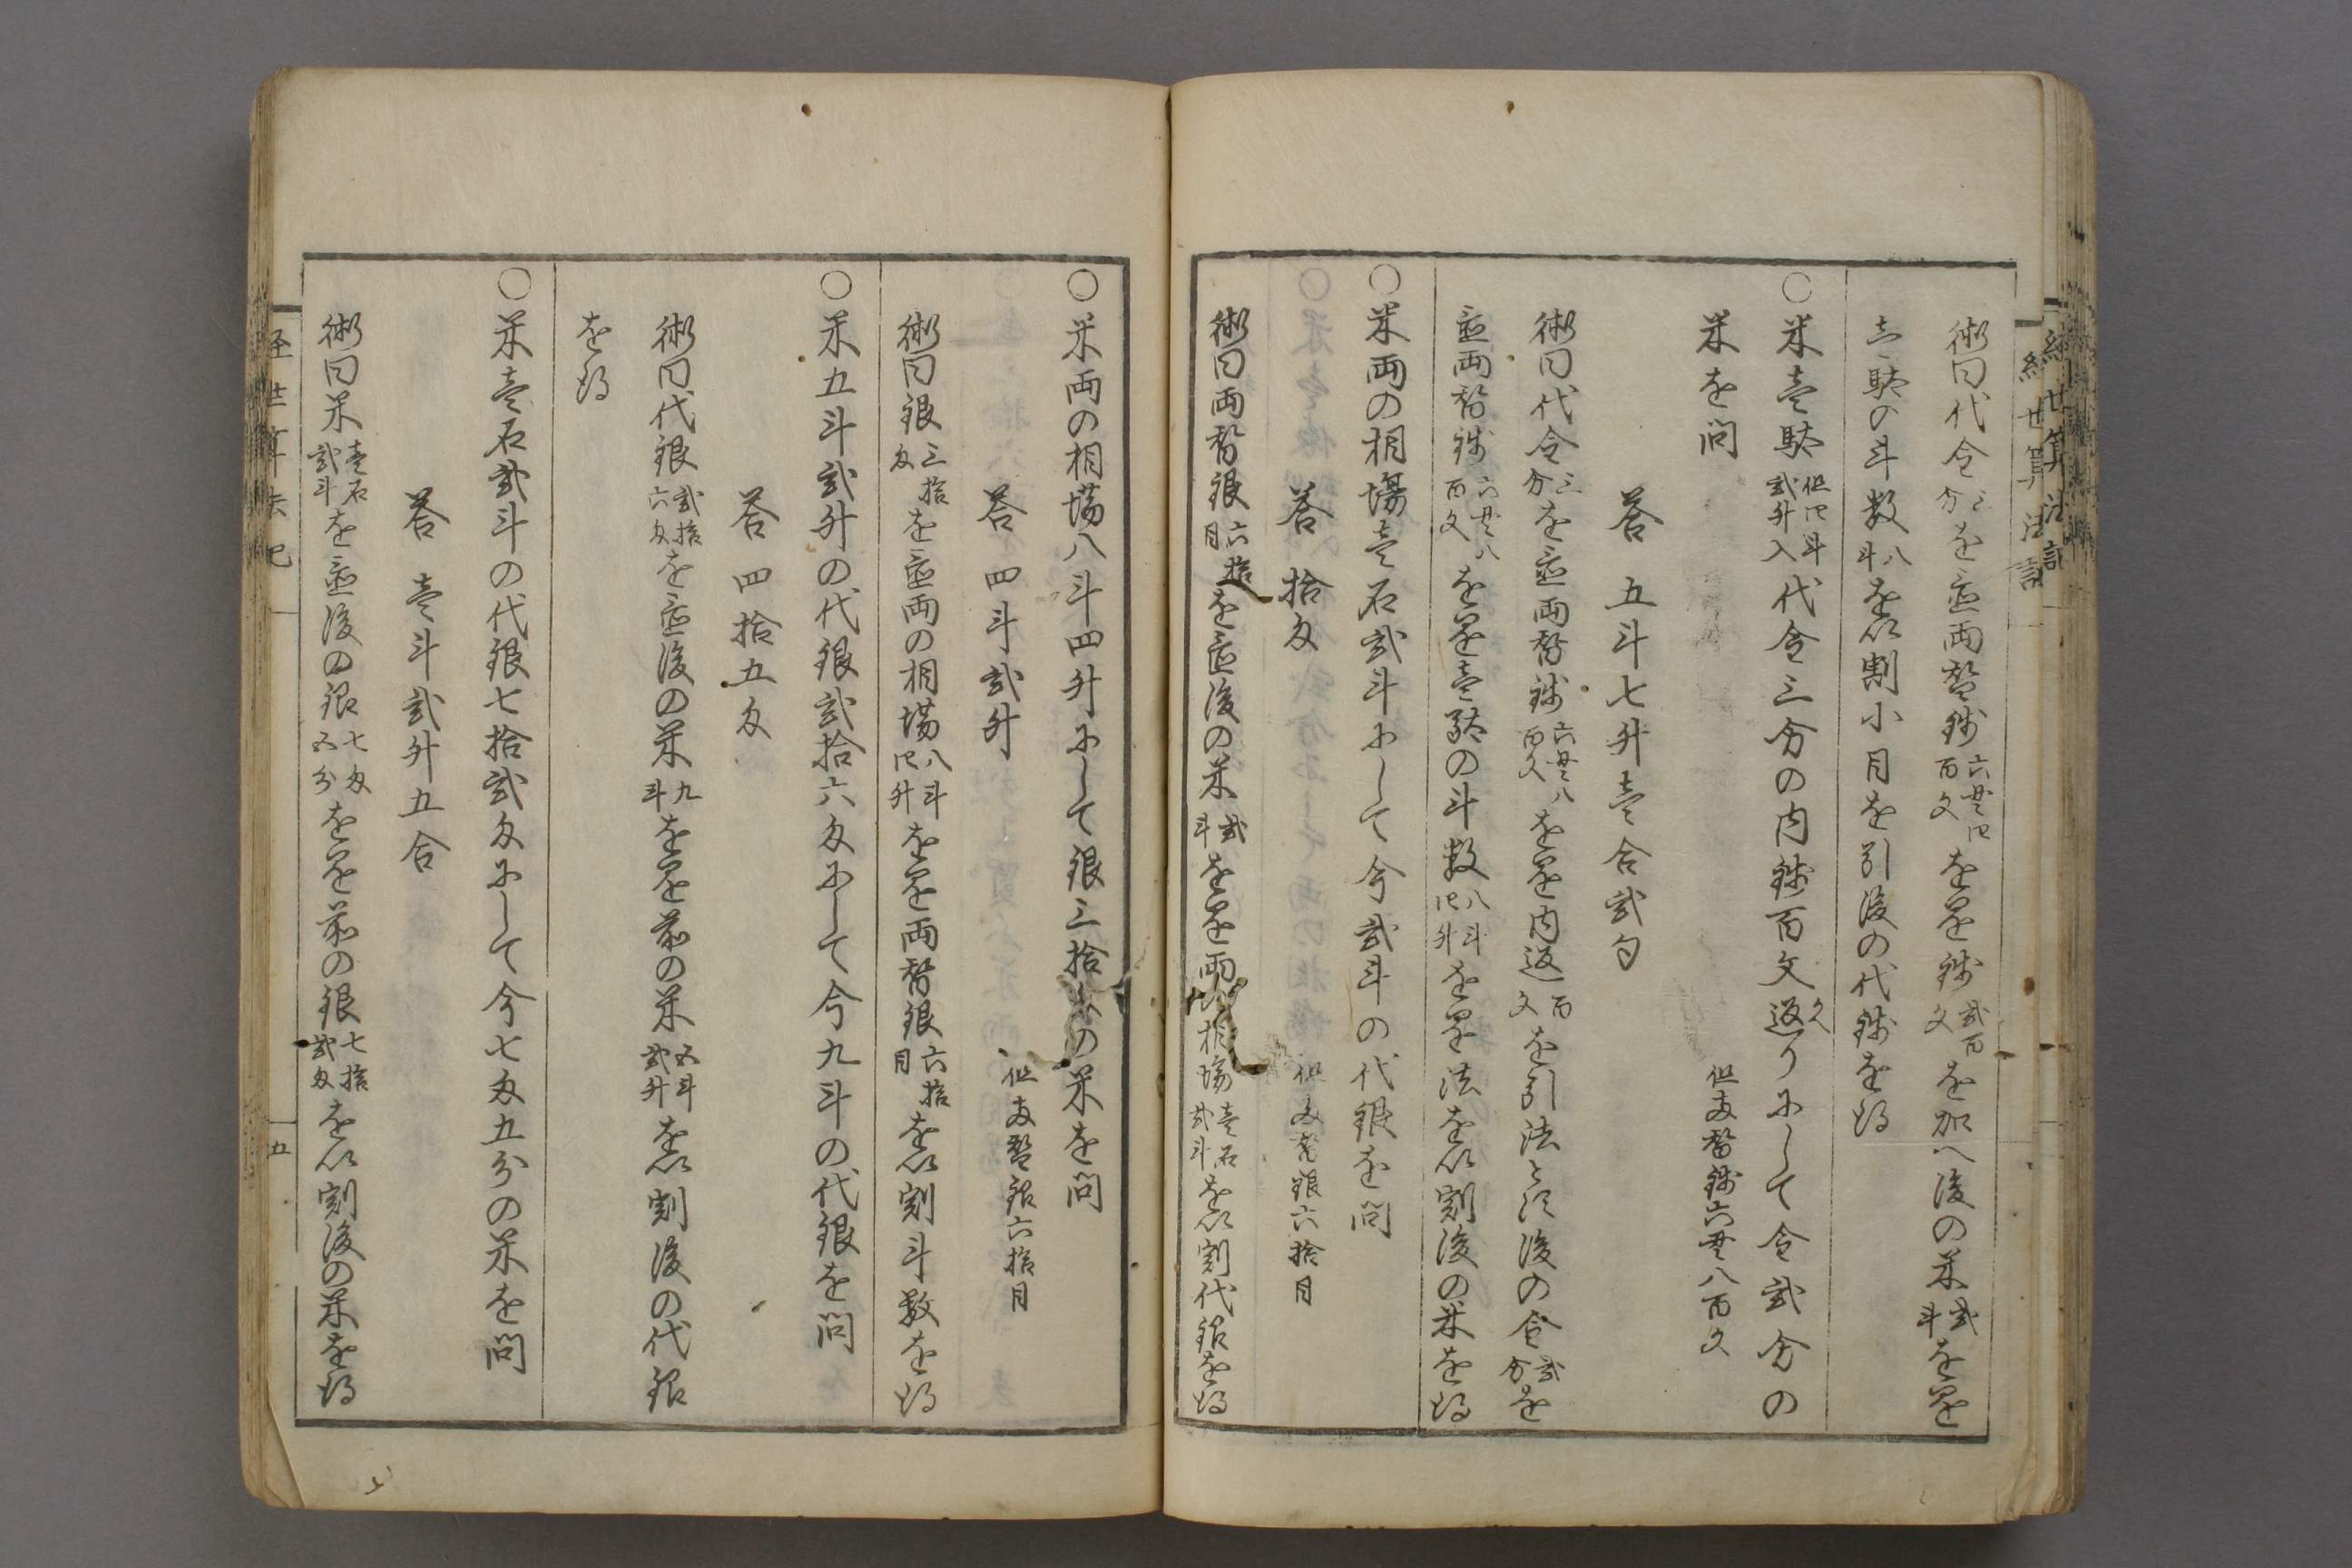 術曰代金三分を置両替銭六貫四百文を置銭弐百文を加へ後の米弐斗を置
壱駄の斗数八斗を以割小目を引後の代銭を得
○米壱駄但四斗弐升入代金三分の内銭百文返りにして金弐分の
米を問　但両替銭六貫八百文
答　五斗七升壱合弐勺
術曰代金三分を置両替銭六貫八百文を置内返百文を引法とし後の金弐分を
置両替銭六貫八百文を置壱駄の斗数八斗四升を置法を以割後の米を得
○米両の相場壱石弐斗にして今弐斗の代銀を問
答　拾匁　但両替銀六拾目
術曰両替銀六拾目を置後の米弐斗を置両の相場壱石弐斗を以割代銀を得
○米両の相場八斗四升にして銀三拾匁の米を問
答　四斗弐升　但両替銀六拾目
術曰銀三拾匁を置両の相場八斗四升を置両替銀六拾目を以割斗数を得
○米五斗弐升の代銀弐拾六匁にして今九斗の代銀を問
答　四拾五匁
術曰代銀弐拾六匁を置後の米九斗を置前の米五斗弐升を以割後の代銀
を得
○米壱石弐斗の代銀七拾弐匁にして今七匁五分の米を問
答　壱斗弐升五合
術曰米壱石弐斗を置後の銀七匁五分を置前の銀七拾弐匁を以割後の米を得
五